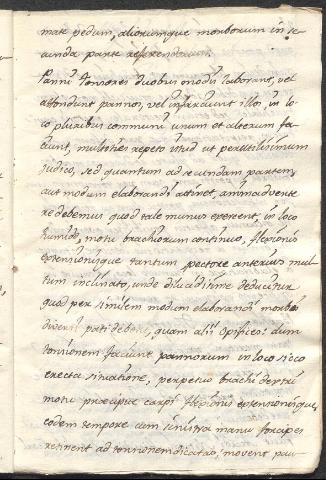 mate pedum, aliorumque morborum in se
cunda parte referendorum.
Panni Tonsores duobus modis laborant, vel
attondunt pannos, vel infarciunt illos, in lo
co pluribus communi unum et alterum fa
ciunt, multoties repeto istud ut perutilissimum
judico, sed quantum ad secundam partem,
aut modum elaborandi attinet, animadverte
re debemus quod tale munus exercent, in loco
humido, motu brachiorum continuo, flexionis
extensionisque tantum pectore anterius mul
tum inclinato, unde dilucidissime deducitur
quod per similem modum elaborandi morbos
diversos pati debent, quam alii Opifices: dum
tonsionem faciunt pannorum in loco sicco
erecta situatione, perpetuo brachii dextri
motu præcipue carpi flexionis extensionisque,
eodem tempore cum sinistra manu forcipes
retinent ad tonsionem dicatas, movent pau